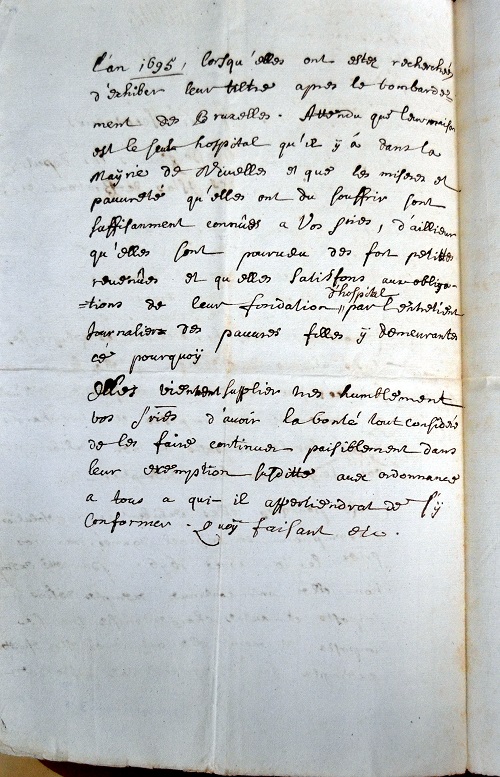 l'an 1695, lorsqu'elles ont estez recherchéz
d'exhiber leur tiltre apres le bombardez
ment des Bruxelles. Attendu que leur maison
est le seul hospital qu'il ÿ á dans la
Mayrie de Nivelles et que les miseres et
pauvreté qu'elles ont du souffrir sont
suffisanment connûes a Vos sries, d'aillieur
qu'elles sont pourveu des fort petittes
revenûes et qu'elles satisfons aux obliga-
d'hospital
=tions de leur fondation // par l'entretient
Journalier des pauvres filles ÿ demeurantes
cé pourquoÿ
Elles viennent supplier tres humblement
vos sries d'avoir la bonté tout consideré
de les faire continuer paisiblement dans
leur exemption susditte avec ordonnance
a tous a qui il appertiendrat de s'ÿ
Conformer. Quoÿ faisant etc.